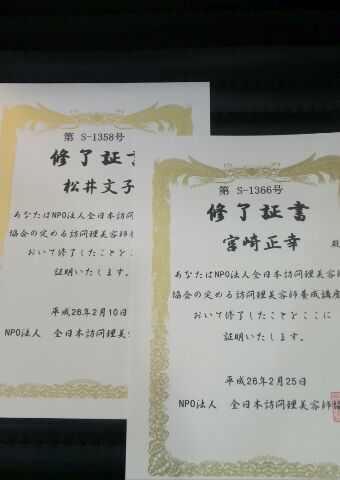 第 S-1358号
修了証
松井文子
あなたはNPO法人全日本訪問
協会の定める訪問理美容師
おいて修了したことを
証明いたします。
平成26年2月10
NPO法人 全日本訪問理美
第 S-1366号
修了証書
宮崎正幸 殿
あなたはNPO法人全日本訪問理美容
協会の定める訪問理美容師養成講座
おいて修了したことをここに
証明いたします。
平成26年2月25日
NPO法人 全日本訪問理美容師協